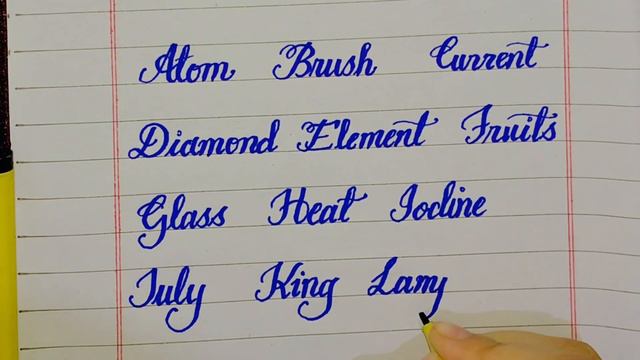 Atom Brush Current
Diamond Element Fruits
Glass Heat Iodine
July King Lam